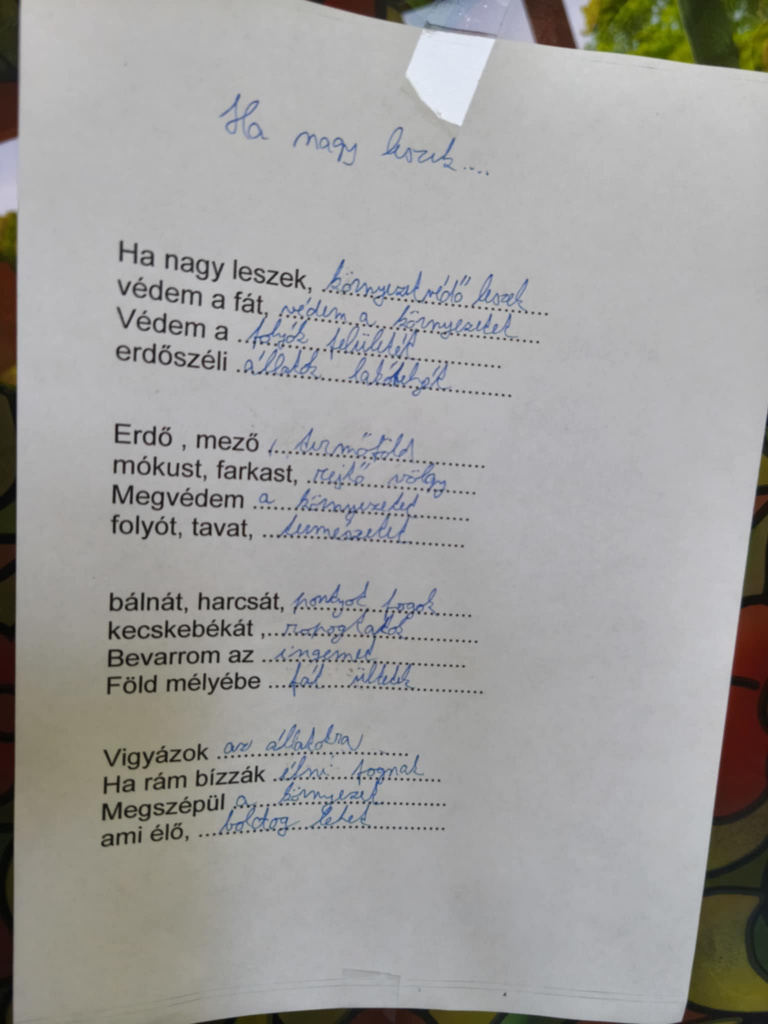 Ha nagy leszek....
Ha nagy leszek, környezetvédő leszek
védem a fát, védem a környezetet
Védem a folyók felületét
erdőszéli állatok lakóhelyét
Erdő , mező , termőföld
mókust, farkast, rejtő völgy
Megvédem a környezetet
folyót, tavat, természetet
bálnát, harcsát, pontyot fogok
kecskebékát , ropogtatok
Bevarrom az ingemet
Föld mélyébe fát ültetek
Vigyázok az állatokra
Ha rám bízzák élni fognak
Megszépül a környezet
ami élő, boldog lehet